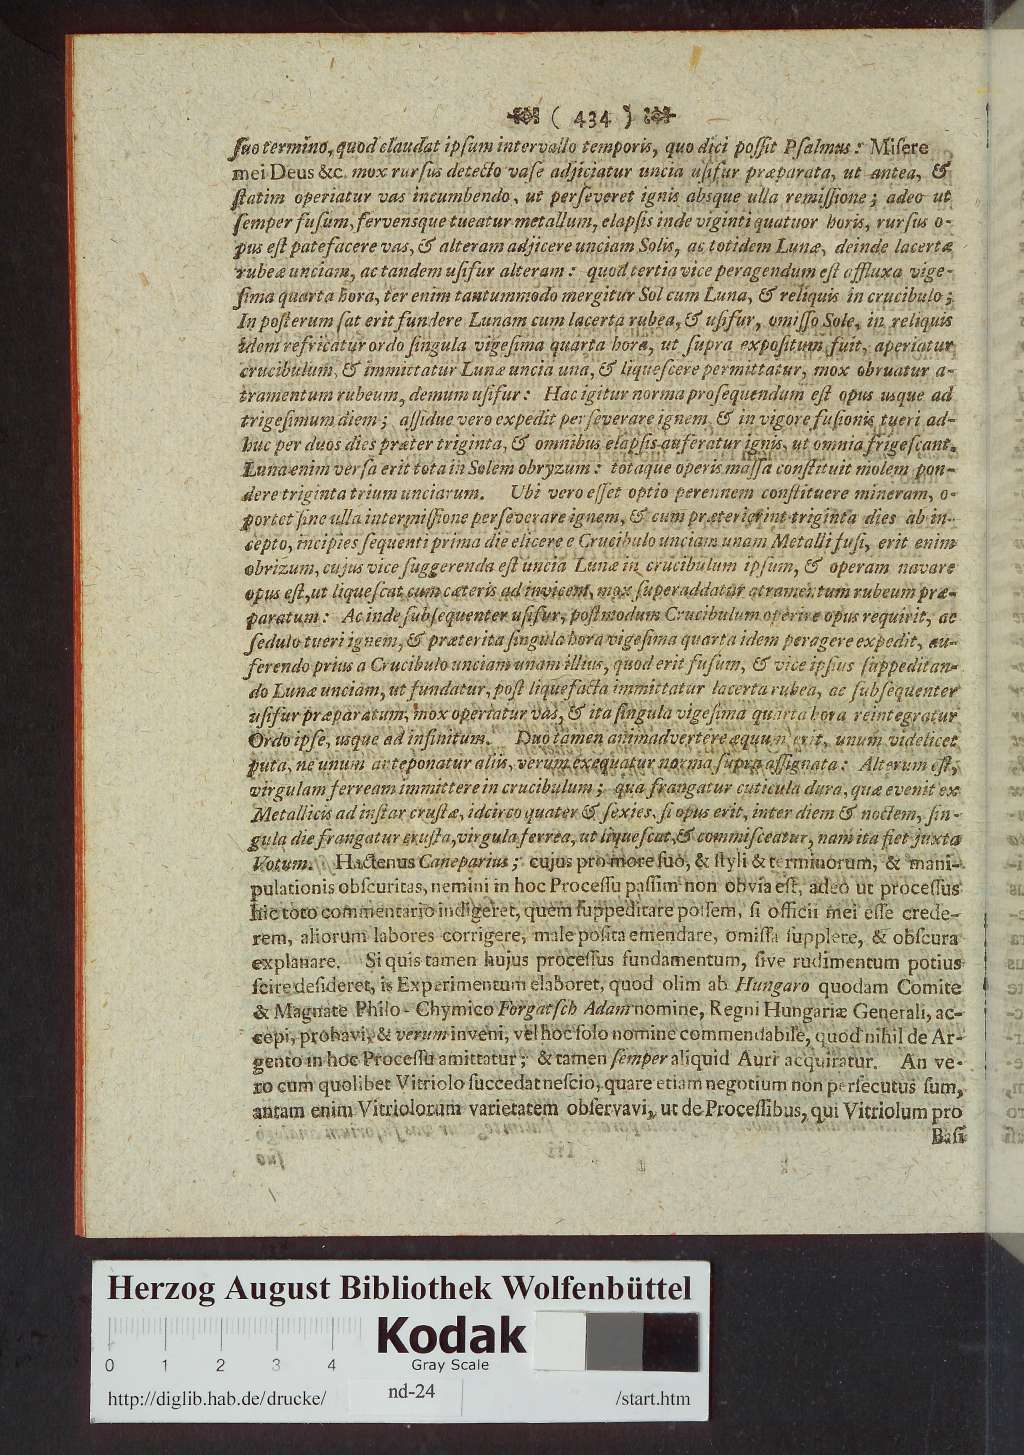 ( 434 )
ſuo termino, quod claudat ipſum intervallo temporis, quo dici poſſit Pſalmus: Miſere
mei Deus &c. mox rurſus detecto vaſe adjiciatur uncia uſifur præparata, ut antea, &
ſtatim operiatur vas incumbendo, ut perſeveret ignis absque ulla remiſſione; adeo ut
ſemper fuſum, fervensque tueatur metallum, elapſis inde viginti quatuor horis, rurſus o-
pus eſt patefacere vas, & alteram adjicere unciam Solis, ac totidem Lunæ, deinde lacertæ
rubeæ unciam, ac tandem uſifur alteram: quod tertia vice peragendum eſt affluxa vige-
ſima quarta hora, ter enim tantummodo mergitur Sol cum Luna, & reliquis in crucibulo;
In poſterum ſat erit fundere Lunam cum lacerta rubea, & uſifur, omiſſo Sole, in reliquis
idem refricatur ordo ſingula vigeſima quarta hora, ut ſupra expoſitum fuit, aperiatur
crucibulum, & immittatur Lunæ uncia una, & liqueſcere permittatur, mox obruatur a-
tramentum rubeum, demum uſifur: Hac igitur norma proſequendum eſt opus usque ad
trigeſimum diem; aſſidue vero expedit perſeverare ignem, & in vigore fuſionis tueri ad-
huc per duos dies præter triginta, & omnibus elapſis auferatur ignis, ut omnia frigeſcant.
Luna enim verſa erit tota in Solem obryzum: totaque operis maſſa conſtituit molem pon-
dere triginta trium unciarum. Ubi vero eſſet optio perennem conſtituere mineram, o-
portet ſine ulla intermiſſione perſeverare ignem, & cum præterierint triginta dies ab in-
cepto, incipies ſequenti prima die elicere e Crucibulo unciam unam Metalli fuſi, erit enim
obrizum, cujus vice ſuggerenda eſt uncia Lunæ in crucibulum ipſum, & operam navare
opus eſt, ut liqueſcat cum cæteris ad invicem, mox ſuperaddatur atramentum rubeum præ-
paratum: Ac inde ſubſequenter uſifur, poſtmodum Crucibulum operire opus requirit, ac
ſedulo tueri ignem, & præterita ſingula hora vigeſima quarta idem peragere expedit, au-
ferendo prius a Crucibulo unciam unam illius, quod erit fuſum, & vice ipſius ſuppeditan-
do Lunæ unciam, ut fundatur, poſt liquefacta immittatur lacerta rubea, ac ſubſequenter
uſifur præparatum, mox operiatur vas, & ita ſingula vigeſima quarta hora reintegratur
Ordo ipſe, usque ad infinitum. Duo tamen animadvertere æquum erit, unum videlicet
puta, ne unum anteponatur aliis, verum exequatur norma ſupra aſſignata: Alterum eſt,
virgulam ferream immittere in crucibulum; qua frangatur cuticula dura, quæ evenit ex
Metallicis ad inſtar cruſtæ, idcirco quater & ſexies, ſi opus erit, inter diem & noctem, ſin-
gula die frangatur cruſta, virgula ferrea, ut liqueſcat, & commiſceatur, nam ita fiet juxta
Votum. Hactenus Caneparius; cujus pro more ſuo, & ſtyli & terminorum, & mani-
pulationis obſcuritas, nemini in hoc Proceſſu paſſim non obvia eſt, adeo ut proceſſus
hic toto commentario indigeret, quem ſuppeditare poſſem, ſi officii mei eſſe crede-
rem, aliorum labores corrigere, male poſita emendare, omiſſa ſupplere, & obſcura
explanare. Si quis tamen hujus proceſſus fundamentum, ſive rudimentum potius
ſcire deſideret, is Experimentum elaboret, quod olim ab Hungaro quodam Comite
& Magnate Philo-Chymico Forgatſch Adam nomine, Regni Hungariæ Generali, ac-
cepi, probavi, & verum inveni, vel hoc ſolo nomine commendabile, quod nihil de Ar-
gento in hoc Proceſſu amittatur; & tamen ſemper aliquid Auri acquiratur. An ve-
ro cum quolibet Vitriolo ſuccedat neſcio, quare etiam negotium non perſecutus ſum,
antam enim Vitriolorum varietatem obſervavi, ut de Proceſſibus, qui Vitriolum pro
Baſi
Herzog August Bibliothek Wolfenbüttel
Kodak
Gray Scale
0 1 2 3 4
http://diglib.hab.de/drucke/ nd-24 /start.htm